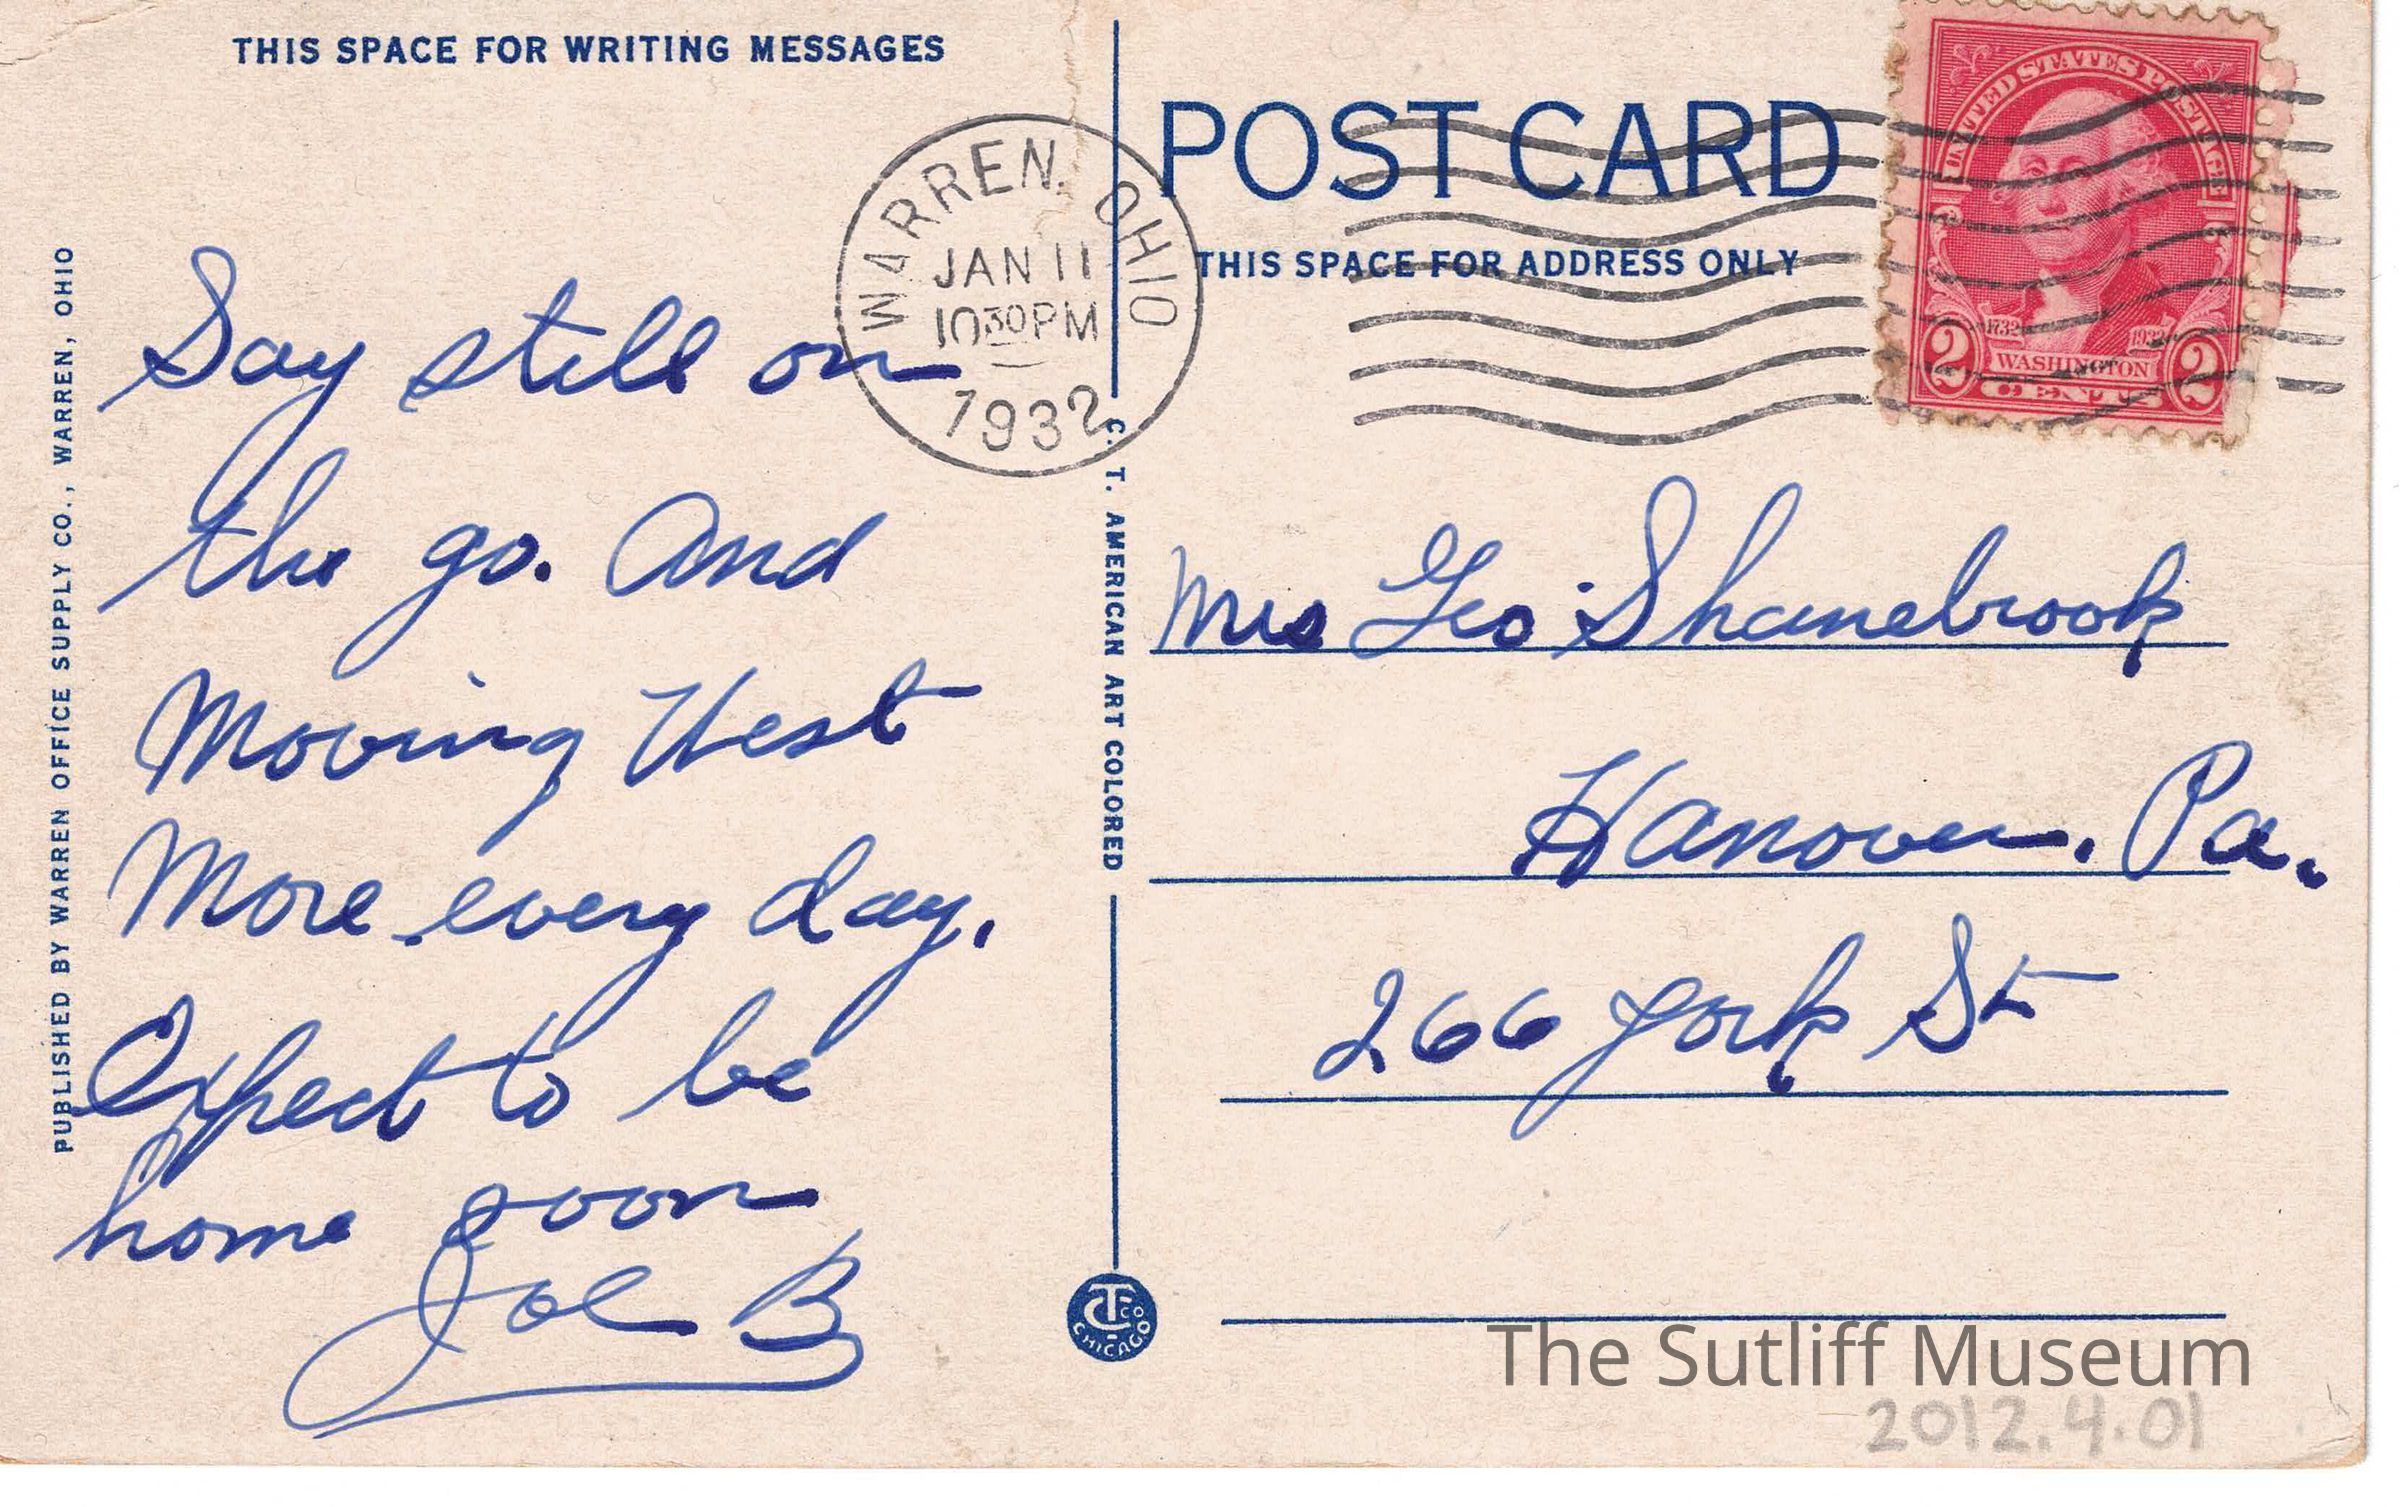 THIS SPACE FOR WRITING MESSAGES
PUBLISHED BY WARREN OFFICE SUPPLY CO., WARREN, OHIO
Say still on
the go. And
Moving West
More every day.
Expect to be
home soon
Joe B
WARREN, OHIO
JAN 11
10 30 PM
1932
C. T. AMERICAN ART COLORED
C T CO
CHICAGO
POST CARD
THIS SPACE FOR ADDRESS ONLY
UNITED STATES POSTAGE
1732 1932
2 WASHINGTON 2
CENTS
Mrs Geo Shanebrook
Hanover. Pa.
266 York St
The Sutliff Museum
2012.4.01